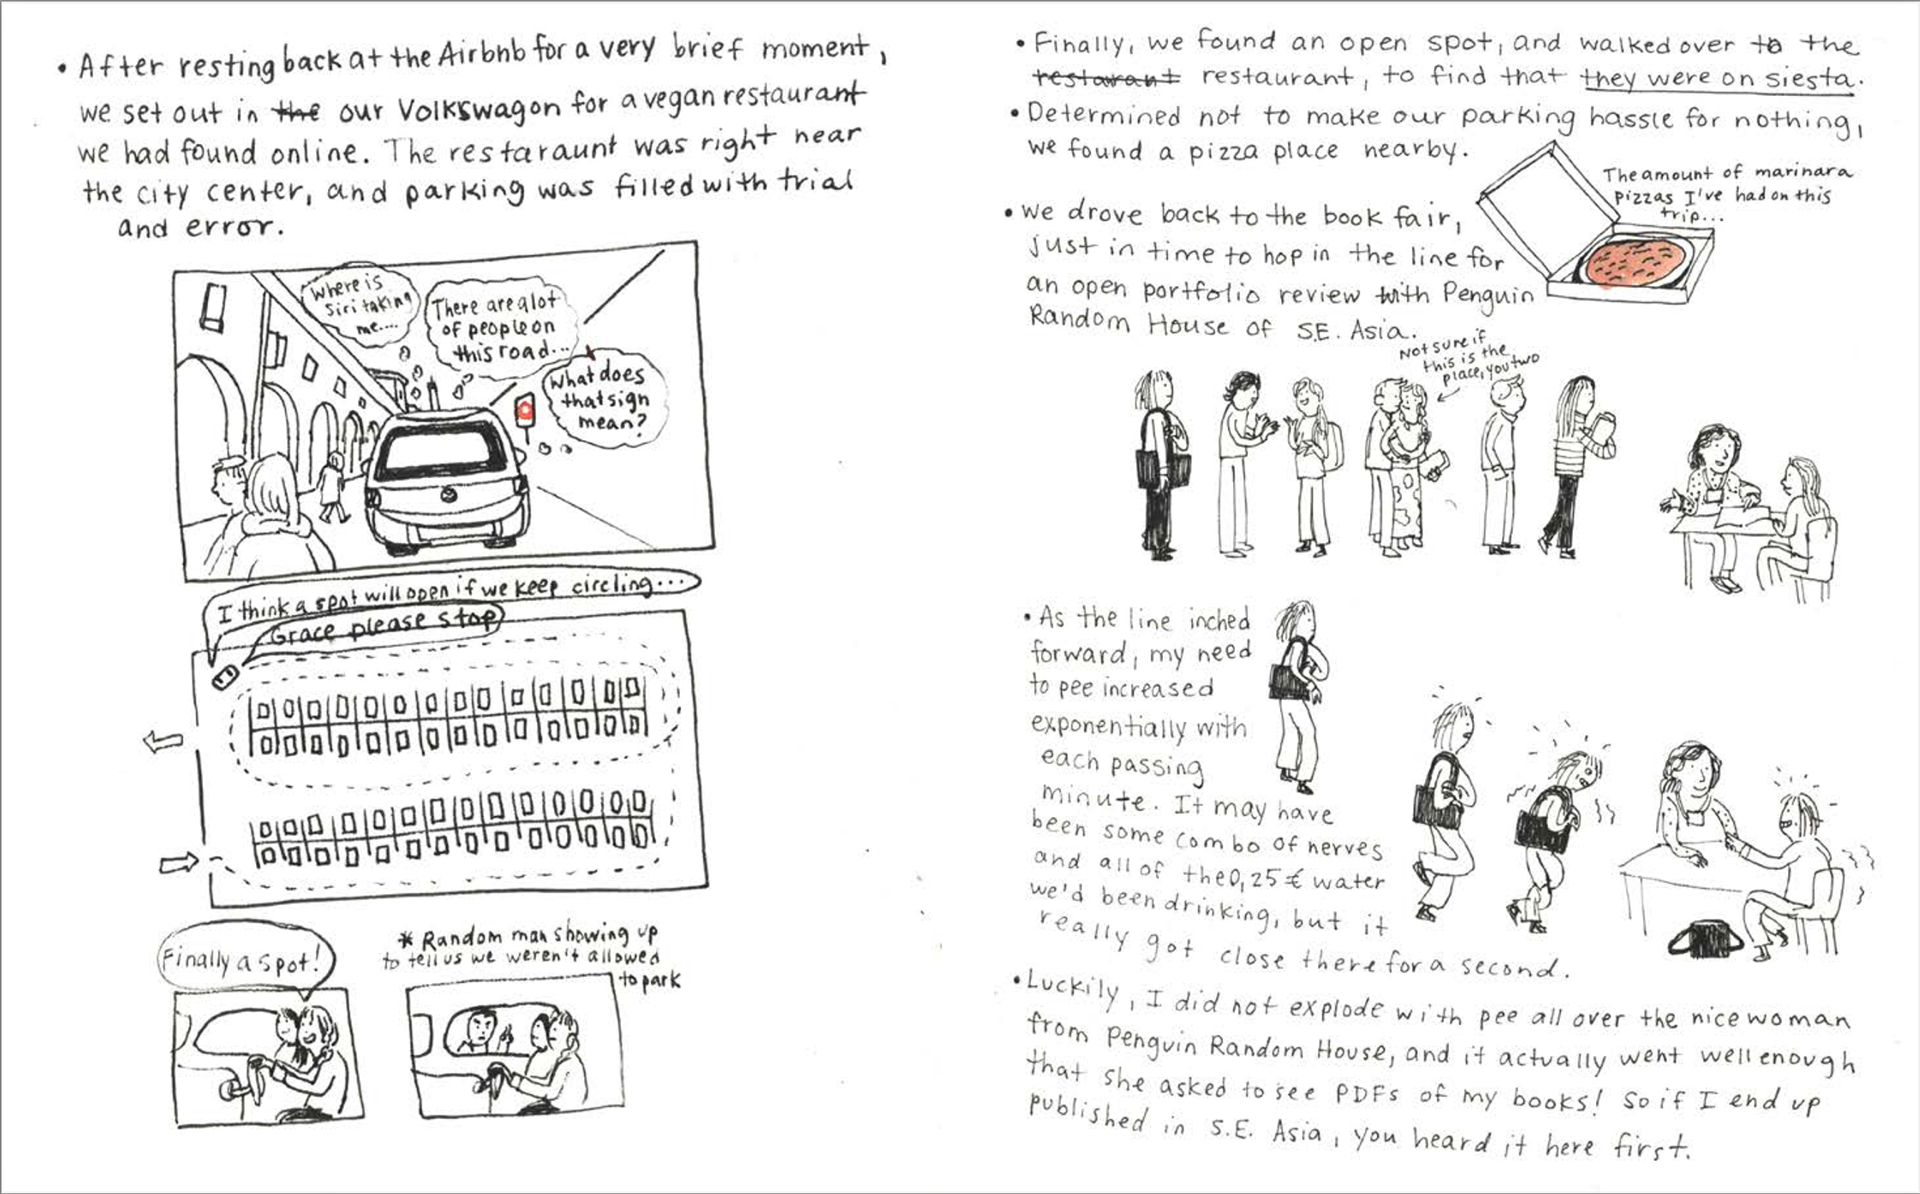 • After resting back at the Airbnb for a very brief moment,
we set out in the our Volkswagon for a vegan restaurant
we had found online. The restaraunt was right near
the city center, and parking was filled with trial
and error.
Where is
Siri taking
me....
There are a lot
of people on
this road...
What does
that sign
mean?
I think a spot will open if we keep circling...
Grace please stop
Finally a spot!
* Random man showing up
to tell us we weren't allowed
to park
• Finally, we found an open spot, and walked over to the
restarant restaurant, to find that they were on siesta.
• Determined not to make our parking hassle for nothing,
we found a pizza place nearby.
The amount of marinara
pizzas I've had on this
trip...
• We drove back to the book fair,
just in time to hop in the line for
an open portfolio review with Penguin
Random House of S.E. Asia.
Not sure if
this is the
place, you two
• As the line inched
forward, my need
to pee increased
exponentially with
each passing
minute. It may have
been some combo of nerves
and all of the 0,25€ water
we'd been drinking, but it
really got close there for a second.
• Luckily, I did not explode with pee all over the nice woman
from Penguin Random House, and it actually went well enough
that she asked to see PDFs of my books! So if I end up
published in S.E. Asia, you heard it here first.